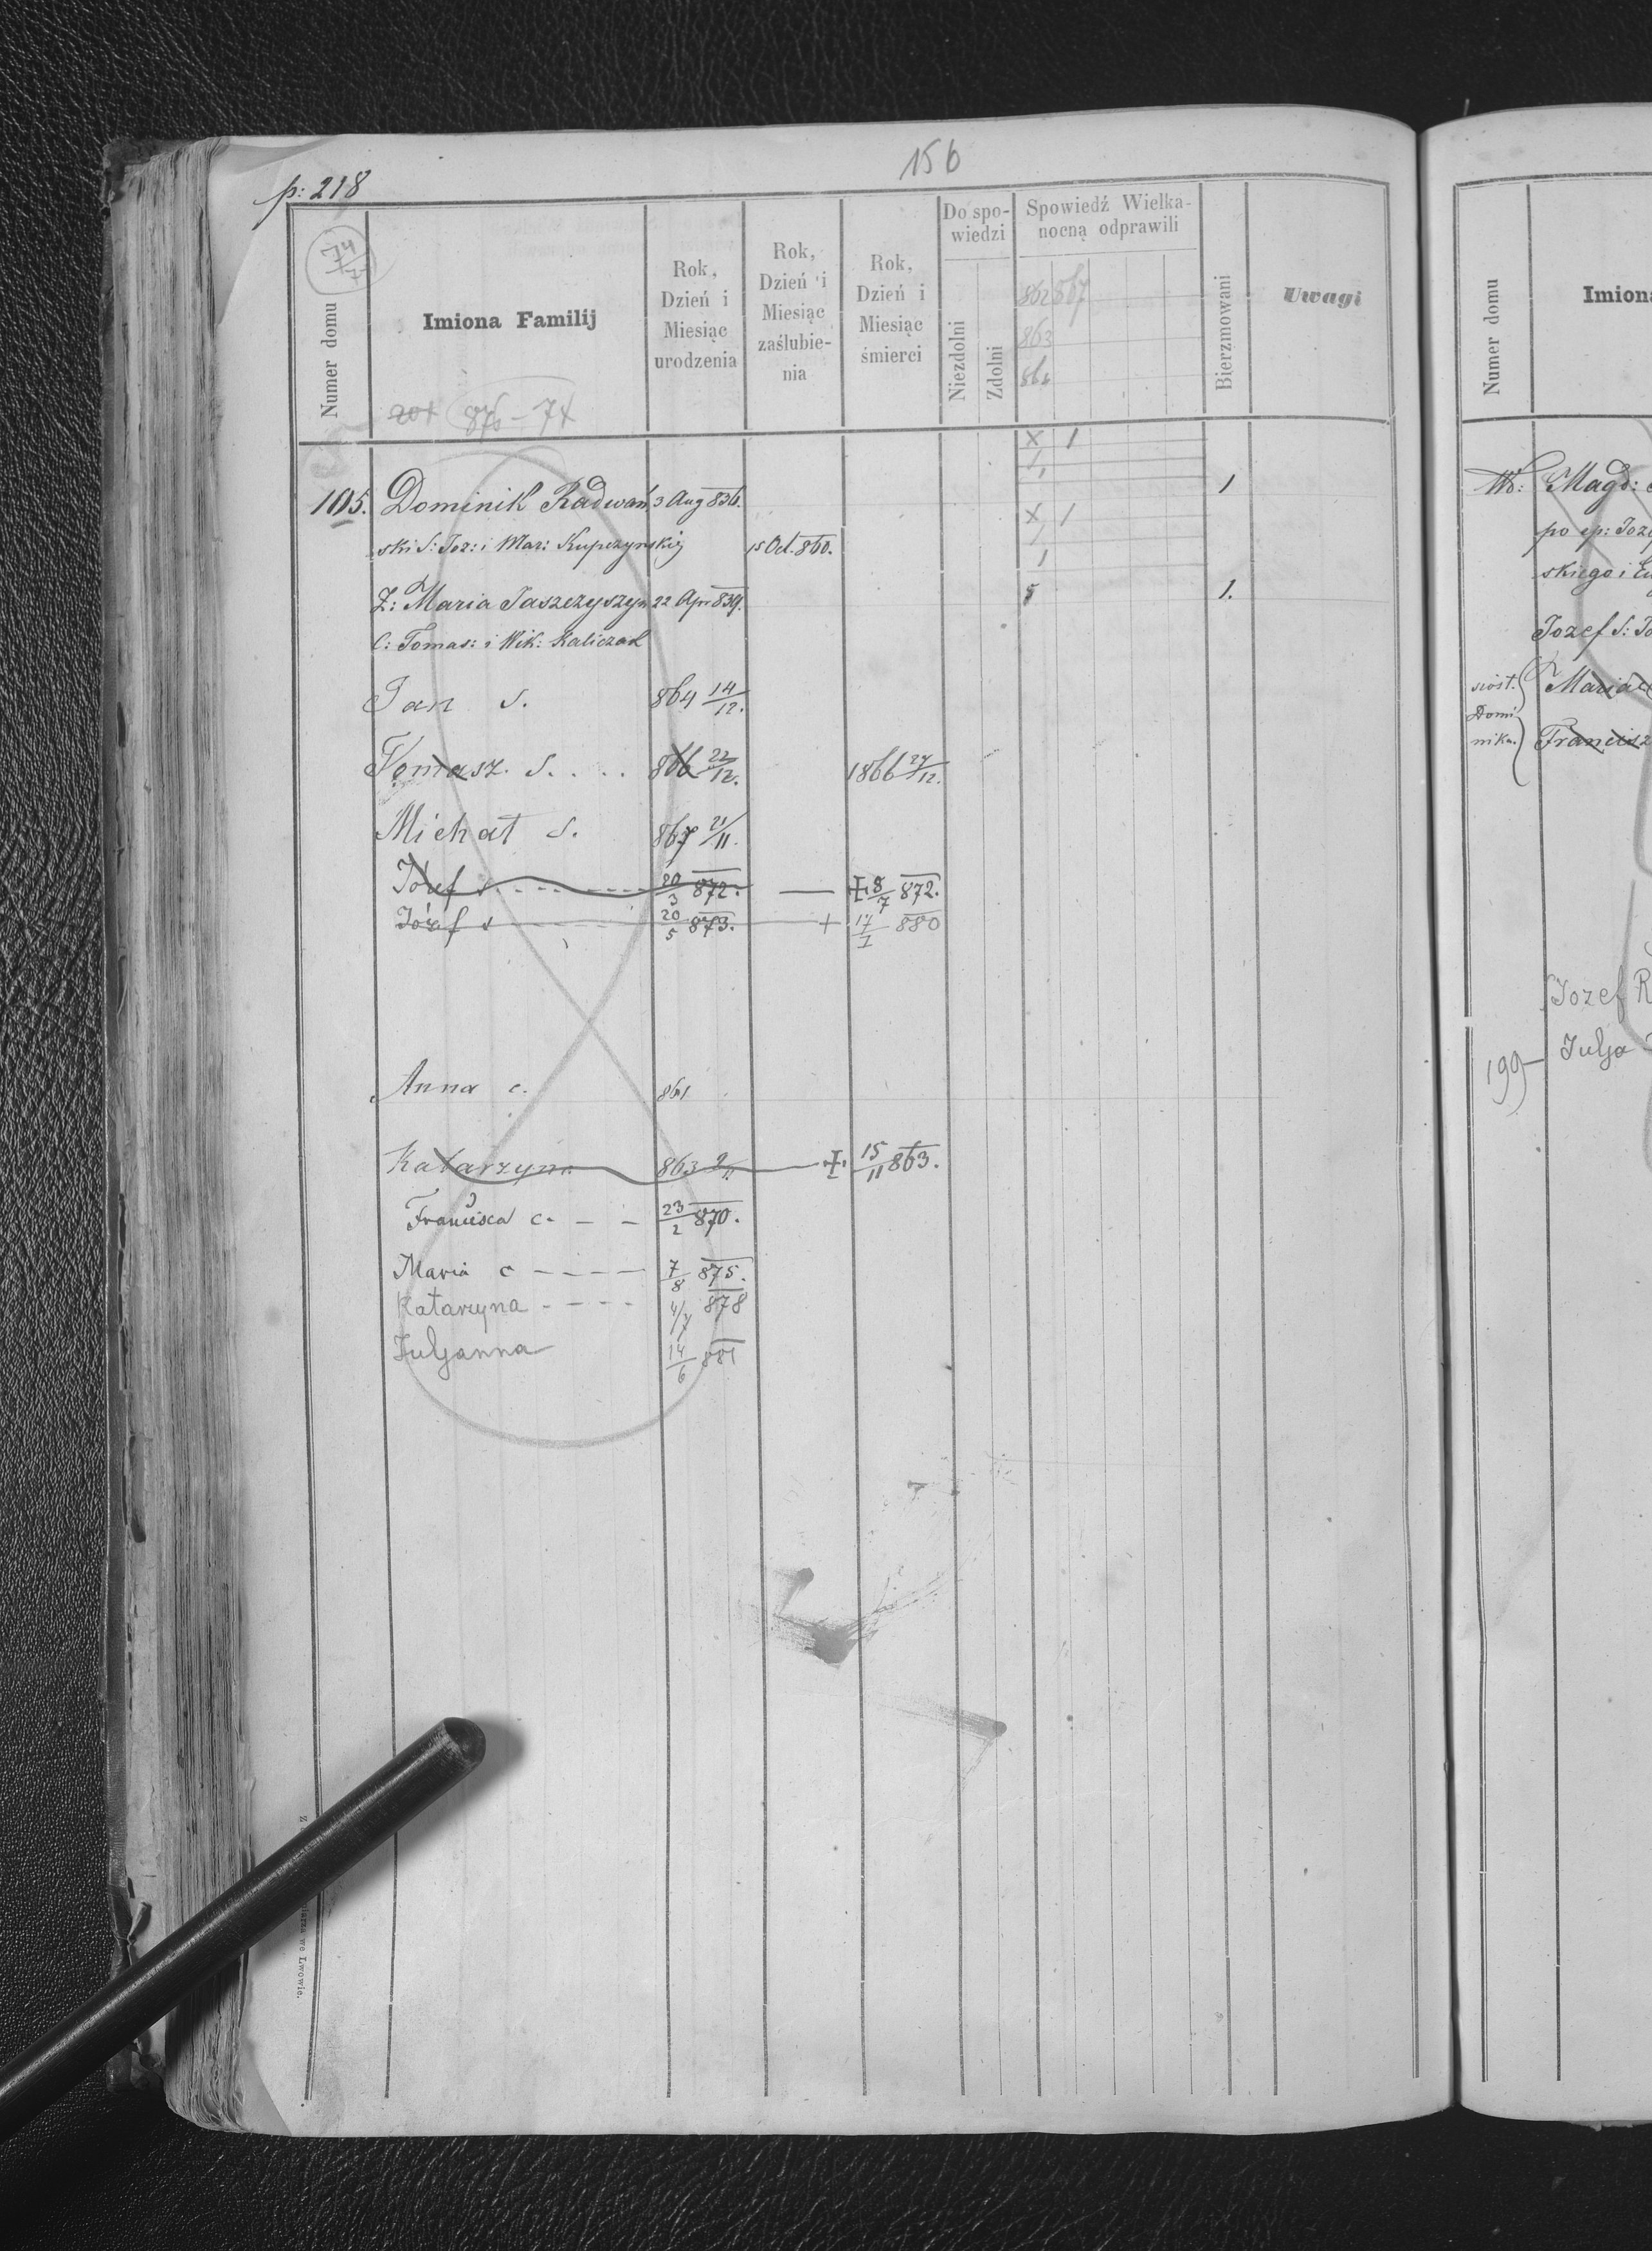 156
p: 218
74/7
Numer domu
Imiona Familij
Rok, Dzień i Miesiąc urodzenia
Rok, Dzień i Miesiąc zaślubienia
Rok, Dzień i Miesiąc śmierci
Do spowiedzi
Niezdolni
Zdolni
Spowiedź Wielkanocną odprawili
Bierzmowani
Uwagi
862 867
863
864
204 876 - 74
X 1
1
105. Dominik Radwań 3 Aug 836. 1
ski S: Joz: i Mar: Kupczynskiej 15 Oct. 860.
X 1
1
1
Ż: Maria Jaszczyszyn 22 Apr 839. 1.
C: Tomas: i Wik: Kaliczak
Jan S. 864 14/12.
Tomasz. S. . . . 866 22/12. 1866 27/12.
Michał S. 867 21/11.
Józef s - - - - 20/3 872. — + 8/7 872.
Józef s - - - - 20/5 873. — + 17/1 880
Anna c. 861
Katarzyna 863 2/11 — + 15/11 863.
Francisca c. — — 23/2 870.
Maria c - - - - 7/8 875.
Katarzyna - - - - 4/7 878
Juljanna 14/6 881
we Lwowie.
Numer domu
Imiona
Wd: Magd:
po ep: Joze
skiego i
Jozef S: Jo
siost. Domi nika. Maria
Francisz
Jozef R
199 Julja